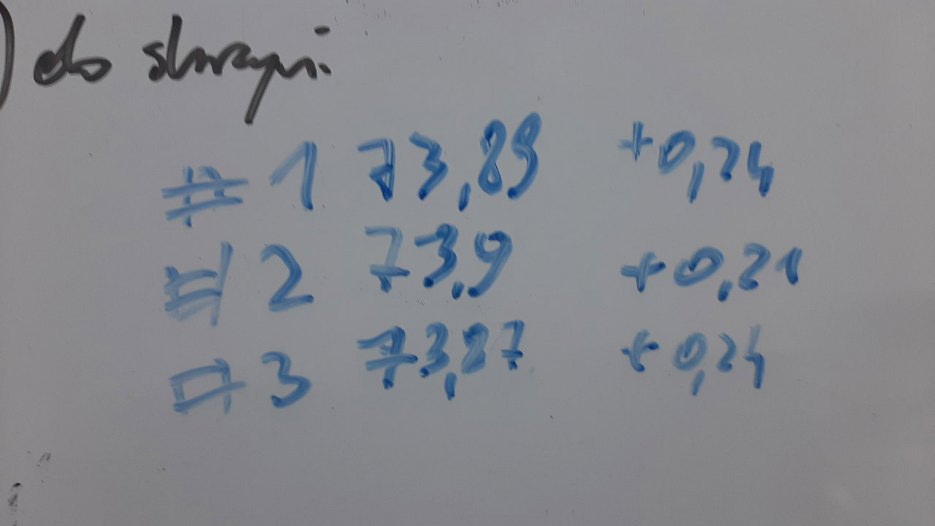 ) do skrzyni:
# 1 73,89 +0,24
# 2 73,9 +0,21
# 3 73,87 +0,24